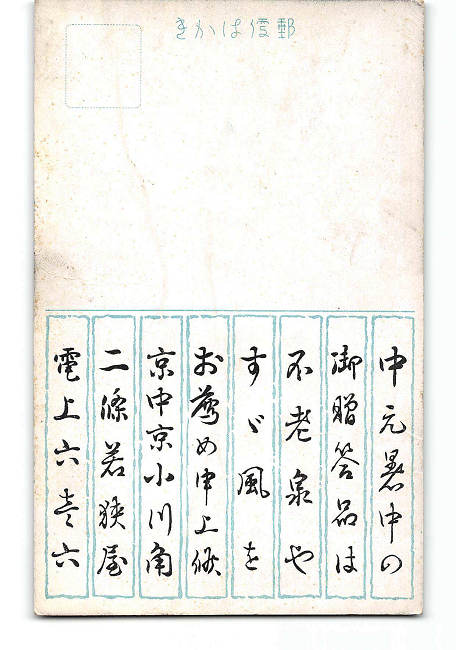 きかは便郵
中元暑中の
御贈答品は
不老泉や
すゞ風を
お薦め申上候
京中京小川角
二條若狭屋
電上六壱六